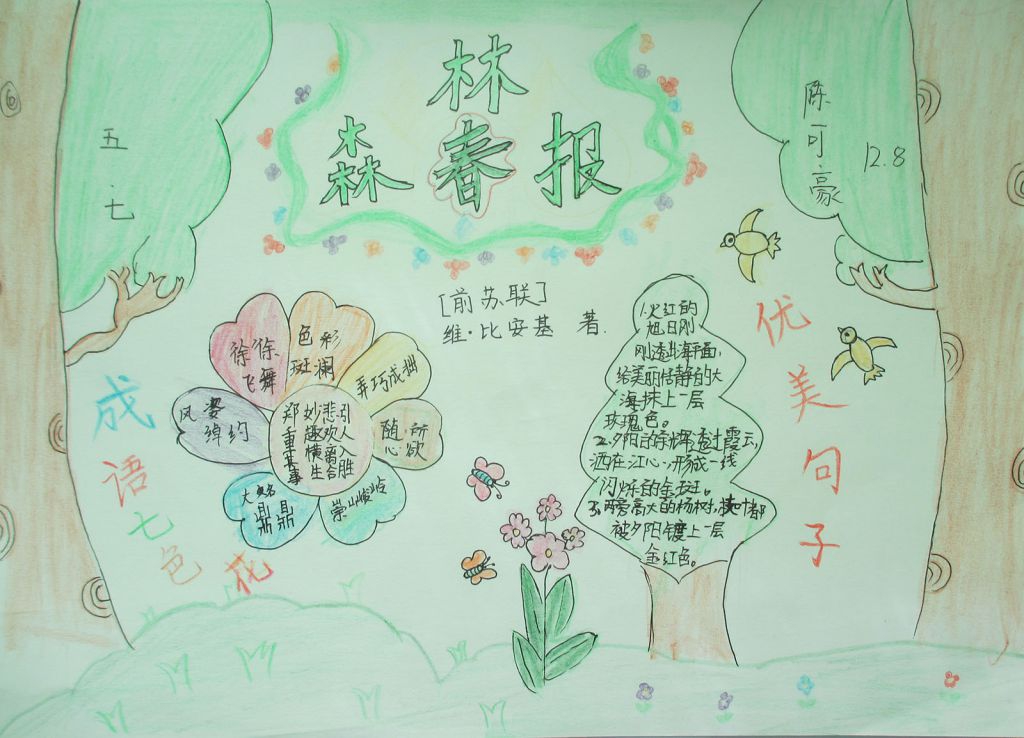 林
森 春 报
五
七
陈可豪
12.8
[前苏联]
维·比安基 著.
成语七色花
徐徐飞舞
色彩斑澜
弄巧成拙
随心所欲
崇山峻岭
大名鼎鼎
风姿绰约
引人入胜
悲欢离合
妙趣横生
郑重其事
优美句子
1.火红的
旭日刚
刚透出海平面,
给美丽恬静的大
海抹上一层
玫瑰色。
2.夕阳的余辉透过霞云,
洒在江心,形成一线
闪烁的金斑。
3.两旁高大的杨树,枝叶都
被夕阳镀上一层
金红色。